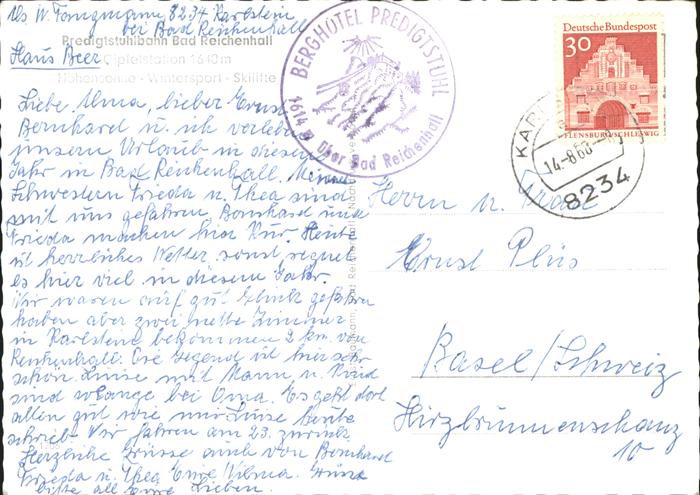 bei W. Fangmann 8234 Karlstein
bei Bad Reichenhall
Predigtstuhlbahn Bad Reichenhall
Haus Beer
Gipfelstation 1640 m
Höhensonne - Wintersport - Skilifte
Liebe Alma, lieber Ernst
Bernhard u. ich verleben
unseren Urlaub in diesem
Jahr in Bad Reichenhall. Meine
Schwestern Frieda u. Thea sind
mit uns gefahren. Bernhard und
Frieda machen hier Kur. Heute
ist herrliches Wetter sonst regnet
es hier viel in diesem Jahr.
Wir waren auf gut Glück gefahren
haben aber zwei nette Zimmer
in Karlstein bekommen 2 km von
Reichenhall. Die Gegend ist hier sehr
schön. Luise mit Mann u. Kind
sind solange bei Oma. Es geht dort
allen gut wie mir Luise heute
schrieb. Wir fahren am 23. zurück
Herzliche Grüsse auch von Bernhard
Frieda u. Thea Eure Wilma. Grüsse
bitte all Eure Lieben.
BERGHOTEL PREDIGTSTUHL
1614 m über Bad Reichenhall
Deutsche Bundespost
30
FLENSBURG/SCHLESWIG
KARL
14.-8.68
8234
Herrn u. Frau
Ernst Plüs
Basel/Schweiz
Hirzbrunnenschanz
10